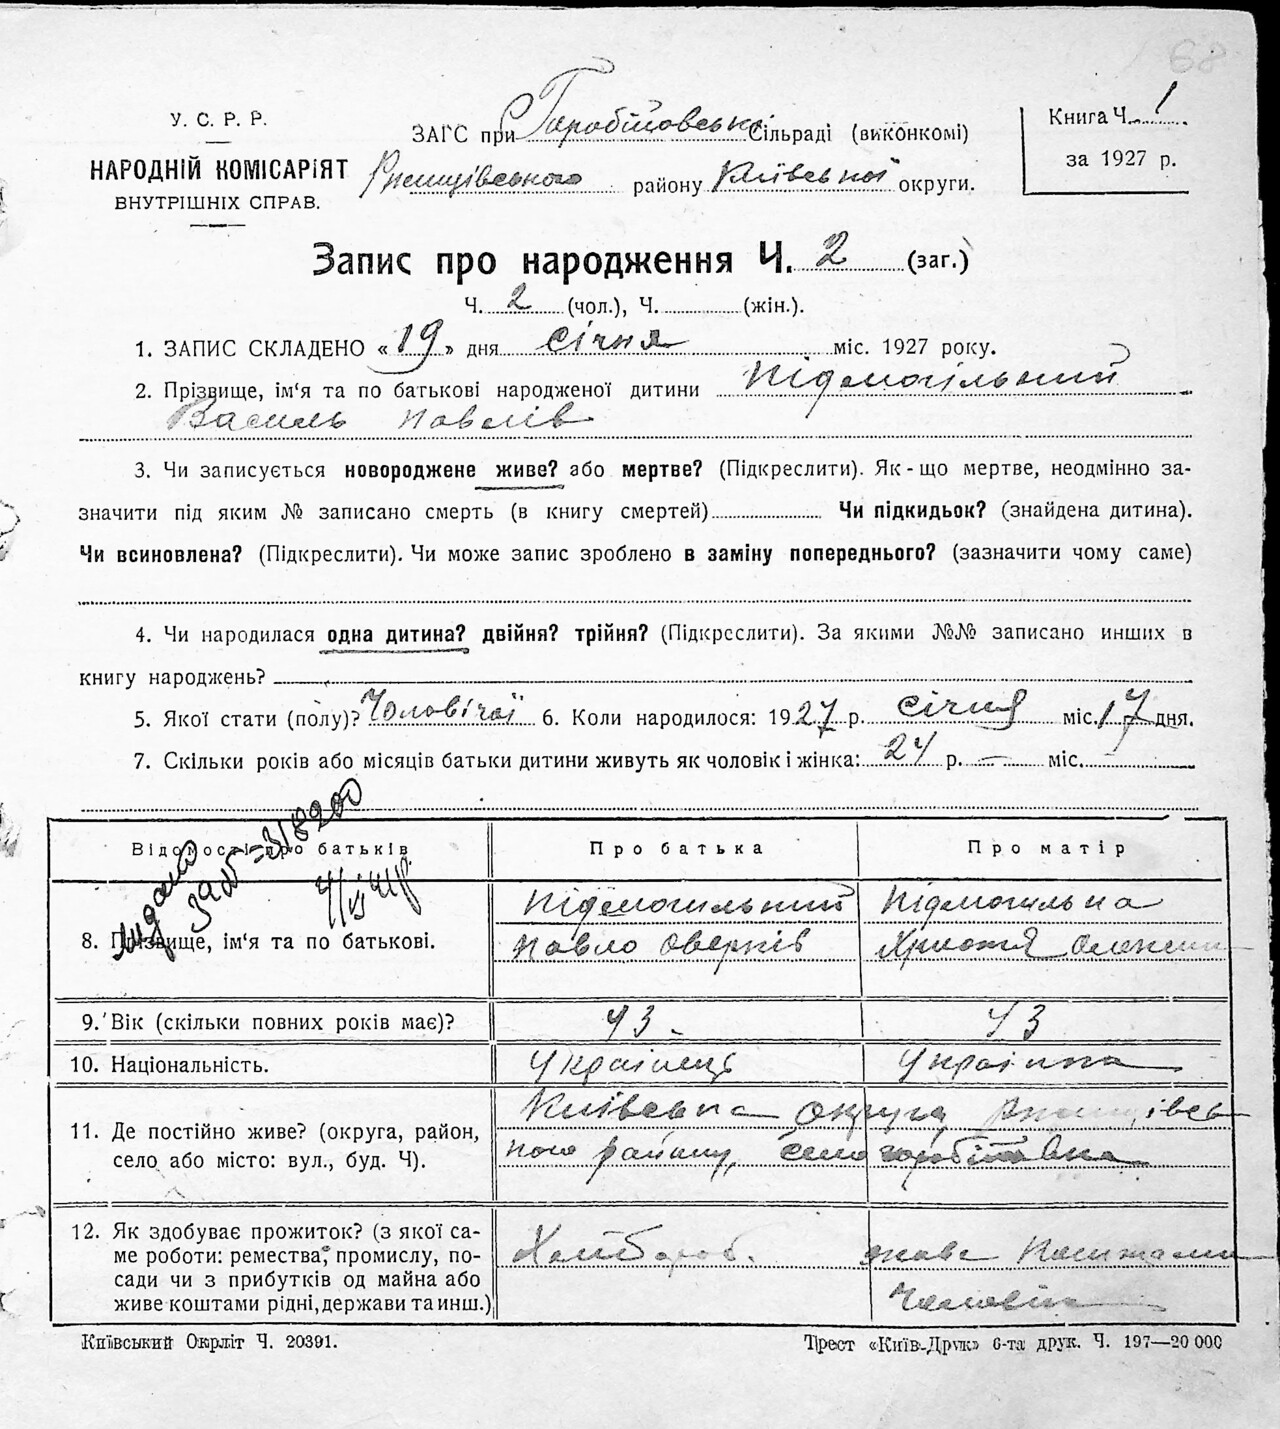 68
У. С. Р. Р.
НАРОДНІЙ КОМІСАРІЯТ
ВНУТРІШНІХ СПРАВ.
ЗАГС при Горобіївській Сільраді (виконкомі)
Ржищівського району Київської округи.
Книга Ч. 1
за 1927 р.
Запис про народження Ч. 2 (заг.)
Ч. 2 (чол.), Ч. (жін.).
1. ЗАПИС СКЛАДЕНО «19» дня січня міс. 1927 року.
2. Прізвище, ім'я та по батькові народженої дитини Підмогільний
Василь Павлів
3. Чи записується новороджене живе? або мертве? (Підкреслити). Як-що мертве, неодмінно за-
значити під яким № записано смерть (в книгу смертей) Чи підкидьок? (знайдена дитина).
Чи всиновлена? (Підкреслити). Чи може запис зроблено в заміну попереднього? (зазначити чому саме)
4. Чи народилася одна дитина? двійня? трійня? (Підкреслити). За якими №№ записано инших в
книгу народжень?
5. Якої стати (полу)? Чоловічої 6. Коли народилося: 1927 р. січня міс. 17 дня.
7. Скільки років або місяців батьки дитини живуть як чоловік і жінка: 24 р. — міс.
Відомості про батьків
Про батька
Про матір
8. Прізвище, ім'я та по батькові.
Підмогильний
Павло Оверків
Підмогильна
Христя
9. Вік (скільки повних років має)?
43
43
10. Національність.
Українець
Українка
11. Де постійно живе? (округа, район,
село або місто: вул., буд. Ч).
Київська округа Ржищівсь
кого району, село Горобіївка
12. Як здобуває прожиток? (з якої са-
ме роботи: ремества, промислу, по-
сади чи з прибутків од майна або
живе коштами рідні, держави та инш.)
Хлібороб.
живе коштами
чоловіка
Київський Окрліт Ч. 20391.
Трест «Київ-Друк» 6-та друк. Ч. 197—20 000